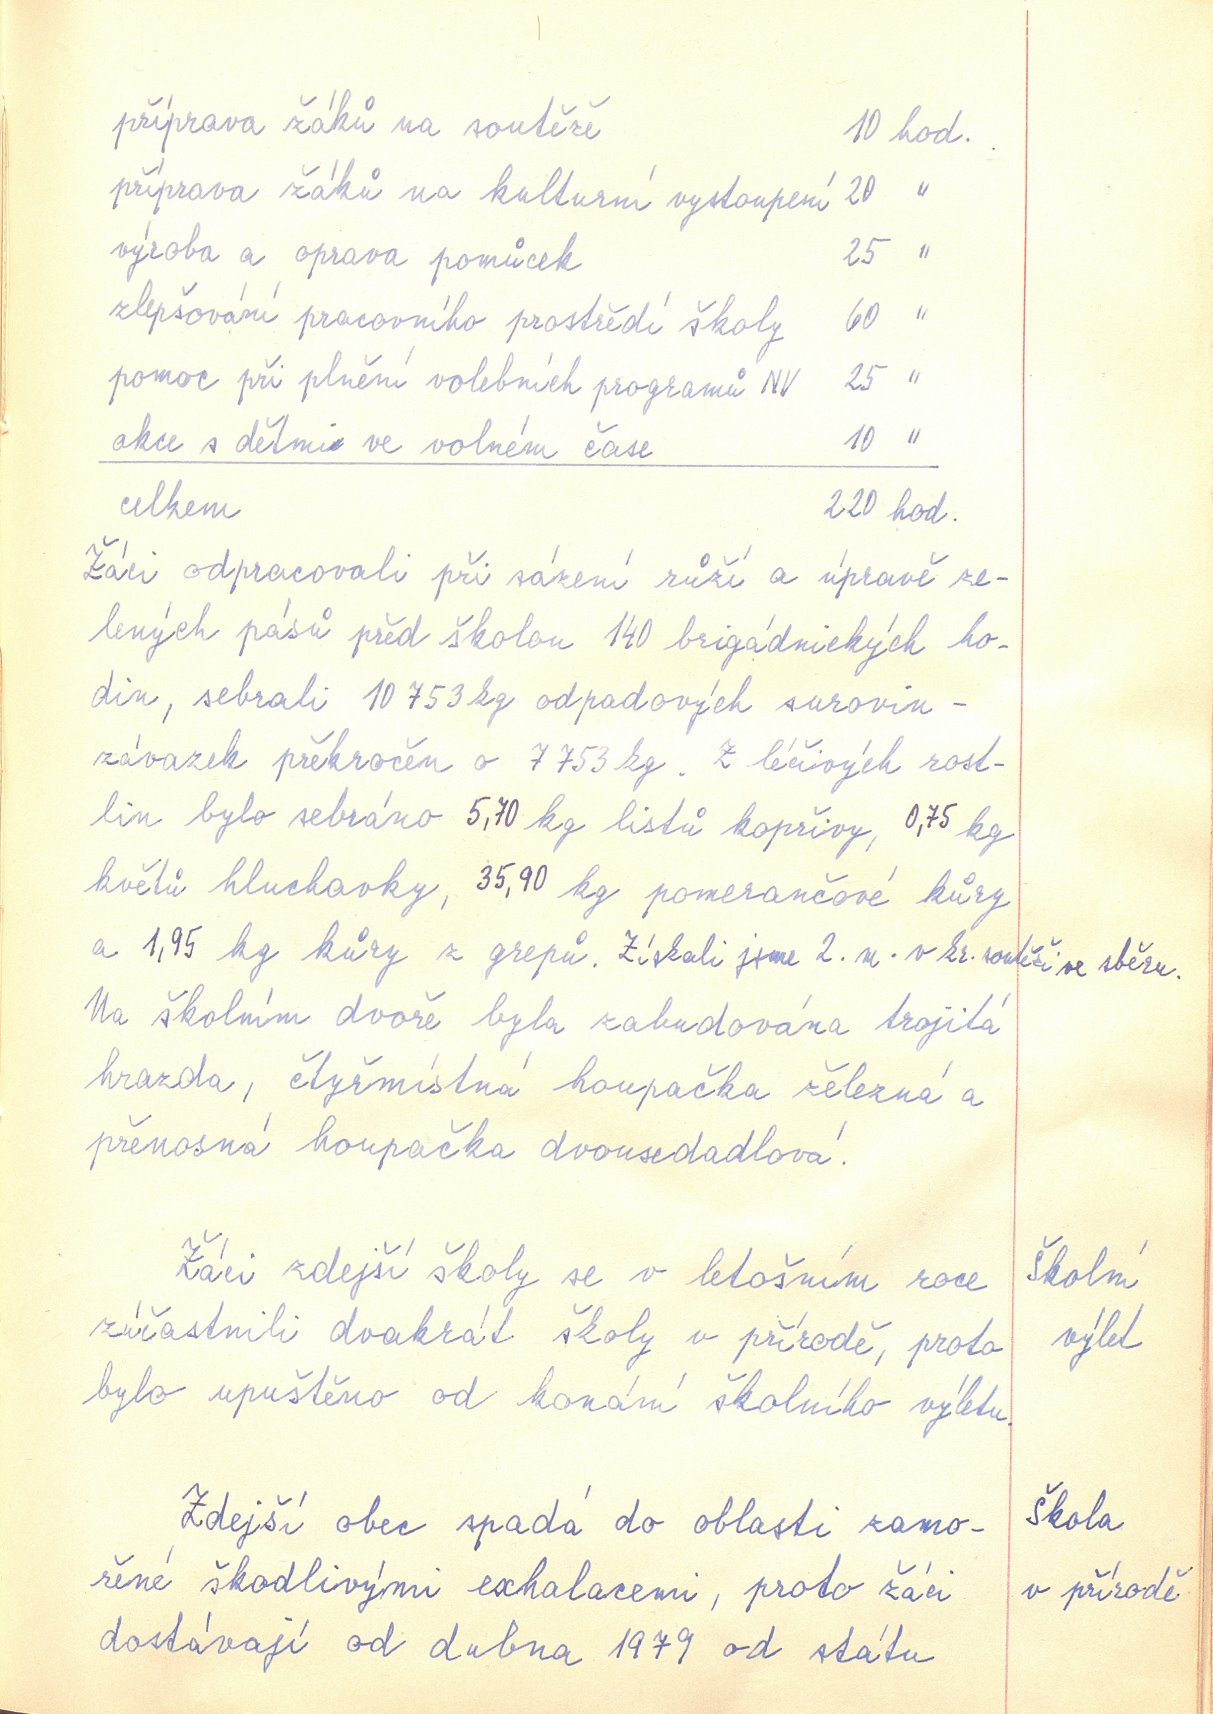 příprava žáků na soutěže 10 hod.
příprava žáků na kulturní vystoupení 20 "
výroba a oprava pomůcek 25 "
zlepšování pracovního prostředí školy 60 "
pomoc při plnění volebních programů NV 25 "
akce s dětmi ve volném čase 10 "
celkem 220 hod.
Žáci odpracovali při sázení růží a úpravě ze-
lených pásů před školou 140 brigádnických ho-
din, sebrali 10 753 kg odpadových surovin -
závazek překročen o 7 753 kg. Z léčivých rost-
lin bylo sebráno 5,70 kg listů kopřivy, 0,75 kg
květů hluchavky, 35,90 kg pomerančové kůry
a 1,95 kg kůry z grepů. Získali jsme 2. m. v kr. soutěži ve sběru.
Na školním dvoře byla zabudována trojitá
hrazda, čtyřmístná houpačka železná a
přenosná houpačka dvousedadlová.
Žáci zdejší školy se v letošním roce
zúčastnili dvakrát školy v přírodě, proto
bylo upuštěno od konání školního výletu.
Školní
výlet
Zdejší obec spadá do oblasti zamo-
řené škodlivými exhalacemi, proto žáci
dostávají od dubna 1979 od státu
Škola
v přírodě